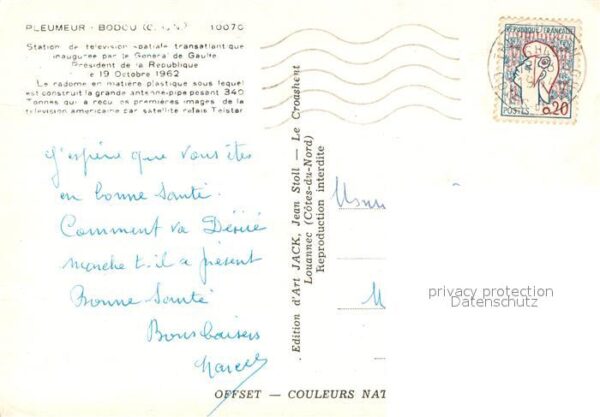 PLEUMEUR - BODOU (C.-d.-N.) 10076
Station de télévision spatiale transatlantique
inaugurée par le Général de Gaulle
Président de la République
le 19 Octobre 1962
Le radome en matière plastique sous lequel
est construit la grande antenne-pipe pesant 340
Tonnes qui a reçu les premières images de la
télévision américaine par satellite relais Telstar
J'espère que vous êtes
en bonne santé.
Comment va Désiré
marche t-il a présent
Bonne Santé
Bons baisers
Marcel
Edition d'Art JACK, Jean Stoll — Le Croashent
Louannec (Côtes-du-Nord)
Reproduction interdite
OFFSET — COULEURS NAT
REPUBLIQUE FRANÇAISE
POSTES 0,20
privacy protection
Datenschutz